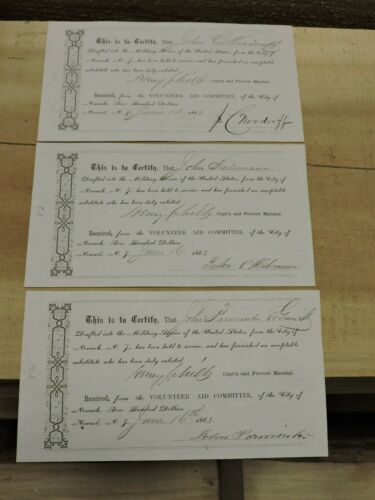 This is to Certify, That John C Woodruff
Drafted into the Military Service of the United States, from the City of
Newark, N. J., has been held to service and has furnished an acceptable
substitute who has been duly enlisted.
Capt'n and Provost Marshal.
Received, from the VOLUNTEER AID COMMITTEE, of the City of
Newark, Five Hundred Dollars
Newark, N. J. June 16 186
J C Woodruff
This is to Certify, That John
Drafted into the Military Service of the United States, from the City of
Newark, N. J., has been held to service and has furnished an acceptable
substitute who has been duly enlisted.
Capt'n and Provost Marshal.
Received, from the VOLUNTEER AID COMMITTEE, of the City of
Newark, Five Hundred Dollars
Newark, N. J. June 16 186
John
This is to Certify, That John Parmenter
Drafted into the Military Service of the United States, from the City of
Newark, N. J., has been held to service and has furnished an acceptable
substitute who has been duly enlisted.
Capt'n and Provost Marshal.
Received, from the VOLUNTEER AID COMMITTEE, of the City of
Newark, Five Hundred Dollars
Newark, N. J. June 16th 186
John Parmenter